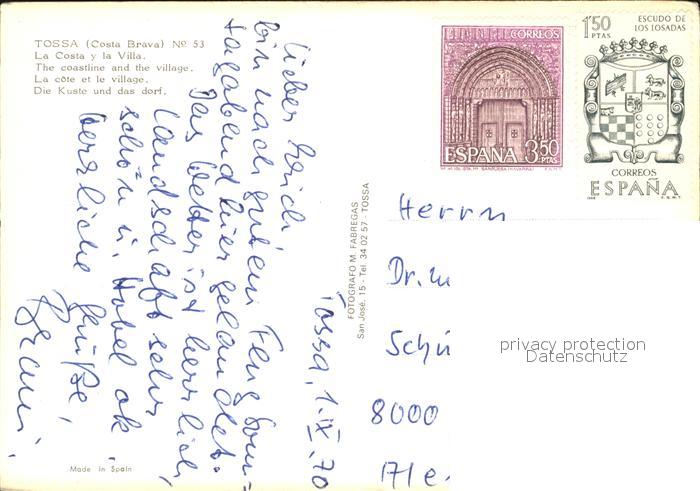 TOSSA (Costa Brava) Nº 53
La Costa y la Villa.
The coastine and the village.
La côte et le village.
Die Kuste und das dorf.
Tossa, 1.IX.70
Lieber Erich
bin nach gutem Flug Sonn=
tagabend hier gelandet.
Das Wetter ist herrlich,
Landschaft sehr
schön u. Hotel ok.
herzliche Grüße,
Made in Spain
FOTOGRAFO M. FABREGAS
San José, 15 - Tel. 34 02 57 - TOSSA
CORREOS
ESPAÑA 3,50 PTAS
1'50 PTAS
ESCUDO DE LOS LOSADAS
CORREOS
ESPAÑA
Herrn
Dr. m
Schü
8000
privacy protection
Datenschutz